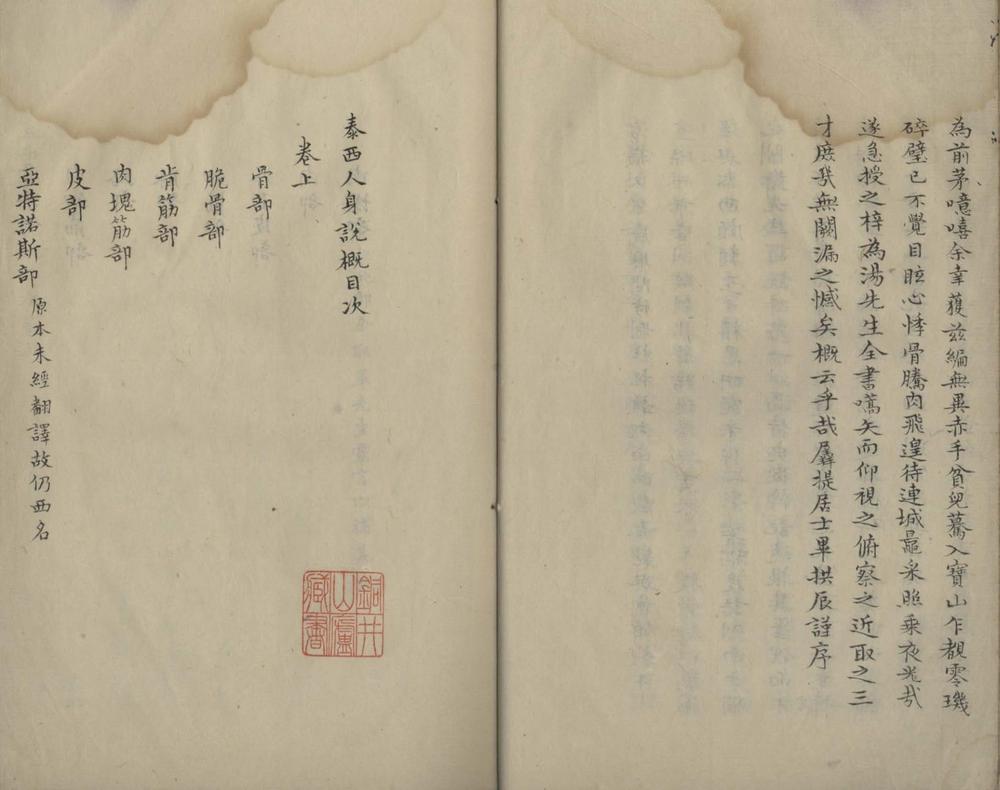 為前茅噫嘻余幸獲茲編無異赤手貧兒驀入寶山乍覩零璣
碎璧已不覺目眩心悸骨騰肉飛遑待連城罍采照乘夜光哉
遂急授之梓為湯先生全書嚆矢而仰視之俯察之近取之三
才庶幾無闕漏之憾矣概云乎哉羼提居士畢拱辰謹序
泰西人身說概目次
卷上
骨部
脆骨部
肯筋部
肉塊筋部
皮部
亞特諾斯部 原本未經翻譯故仍西名
銅井
山廬
藏書